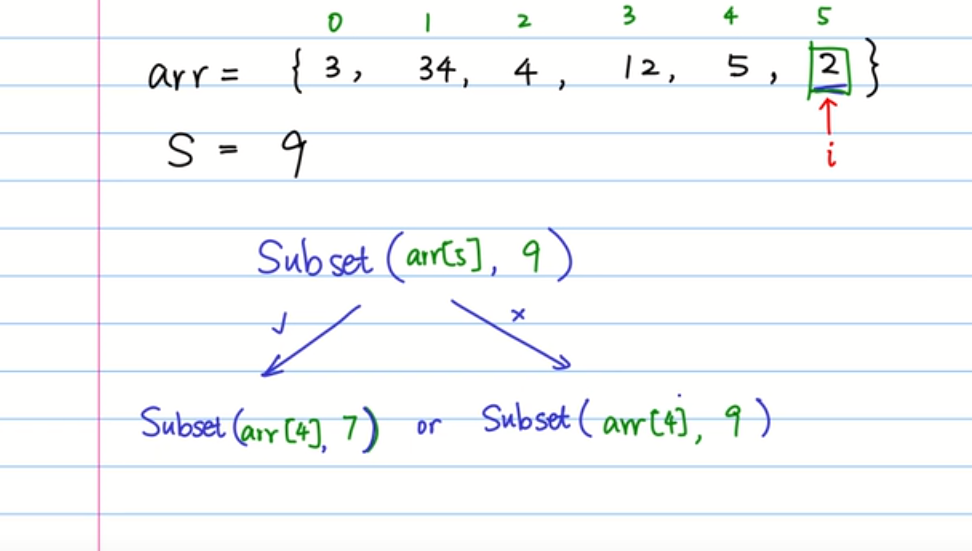 0 1 2 3 4 5
arr = { 3, 34, 4, 12, 5, 2 }
i
S = 9
Subset (arr[5], 9)
√ ×
Subset(arr[4], 7) or Subset(arr[4], 9)